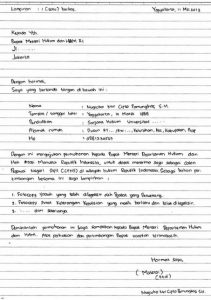 Lampiran : 1 (satu) berkas Yogyakarta, 11 Mei 2013
Kepada Yth.
Bapak Menteri Hukum dan HAM RI
Jl.
Jakarta
Dengan hormat,
Saya yang bertanda tangan di bawah ini :
Nama : Nugroho Cipto Pamungkas, S.H.
Tempat / tanggal lahir : Yogyakarta, 11 Maret 1988
Pendidikan : Sarjana Hukum Universitas
Alamat rumah : Dusun RT... /RW..., Kelurahan, Kec, Kabupaten, Prop
HP :
Dengan ini mengajukan permohonan kepada Bapak Menteri Departemen Hukum dan
Hak Asasi Manusia Republik Indonesia, untuk dapat menerima saya sebagai Calon
Pegawai Negeri Sipil (CPNS) di wilayah hukum Republik Indonesia. Sebagai bahan per-
timbangan bersama ini saya lampirkan :
1. Fotocopy Ijazah yang telah dilegalisir oleh Pejabat yang Berwenang.
2. Fotocopy Surat Keterangan Kepolisian yang masih berlaku dan telah dilegalisir.
3. dan seterusnya.
Demikianlah permohonan ini saya sampaikan kepada Bapak Menteri Departemen Hukum
dan HAM. Atas perhatian dan pertimbangan Bapak ucapkan terimakasih.
Hormat saya,
(Materai)
(ttd)
Nugroho Cipto Pamungkas S.H.